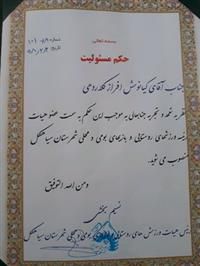 بسمه تعالی
حکم مسئولیت
جناب آقای کیانوش افراز کله رودمی
نظر به تعهد و تجربه جنابعالی به موجب این حکم به سمت عضو هیات
رئیسه ورزشهای روستایی و بازیهای بومی و محلی شهرستان سیاهکل
منصوب می شوید.
ومن الله التوفیق
رئیس هیات ورزش های روستایی و بازیهای بومی و محلی شهرستان سیاهکل